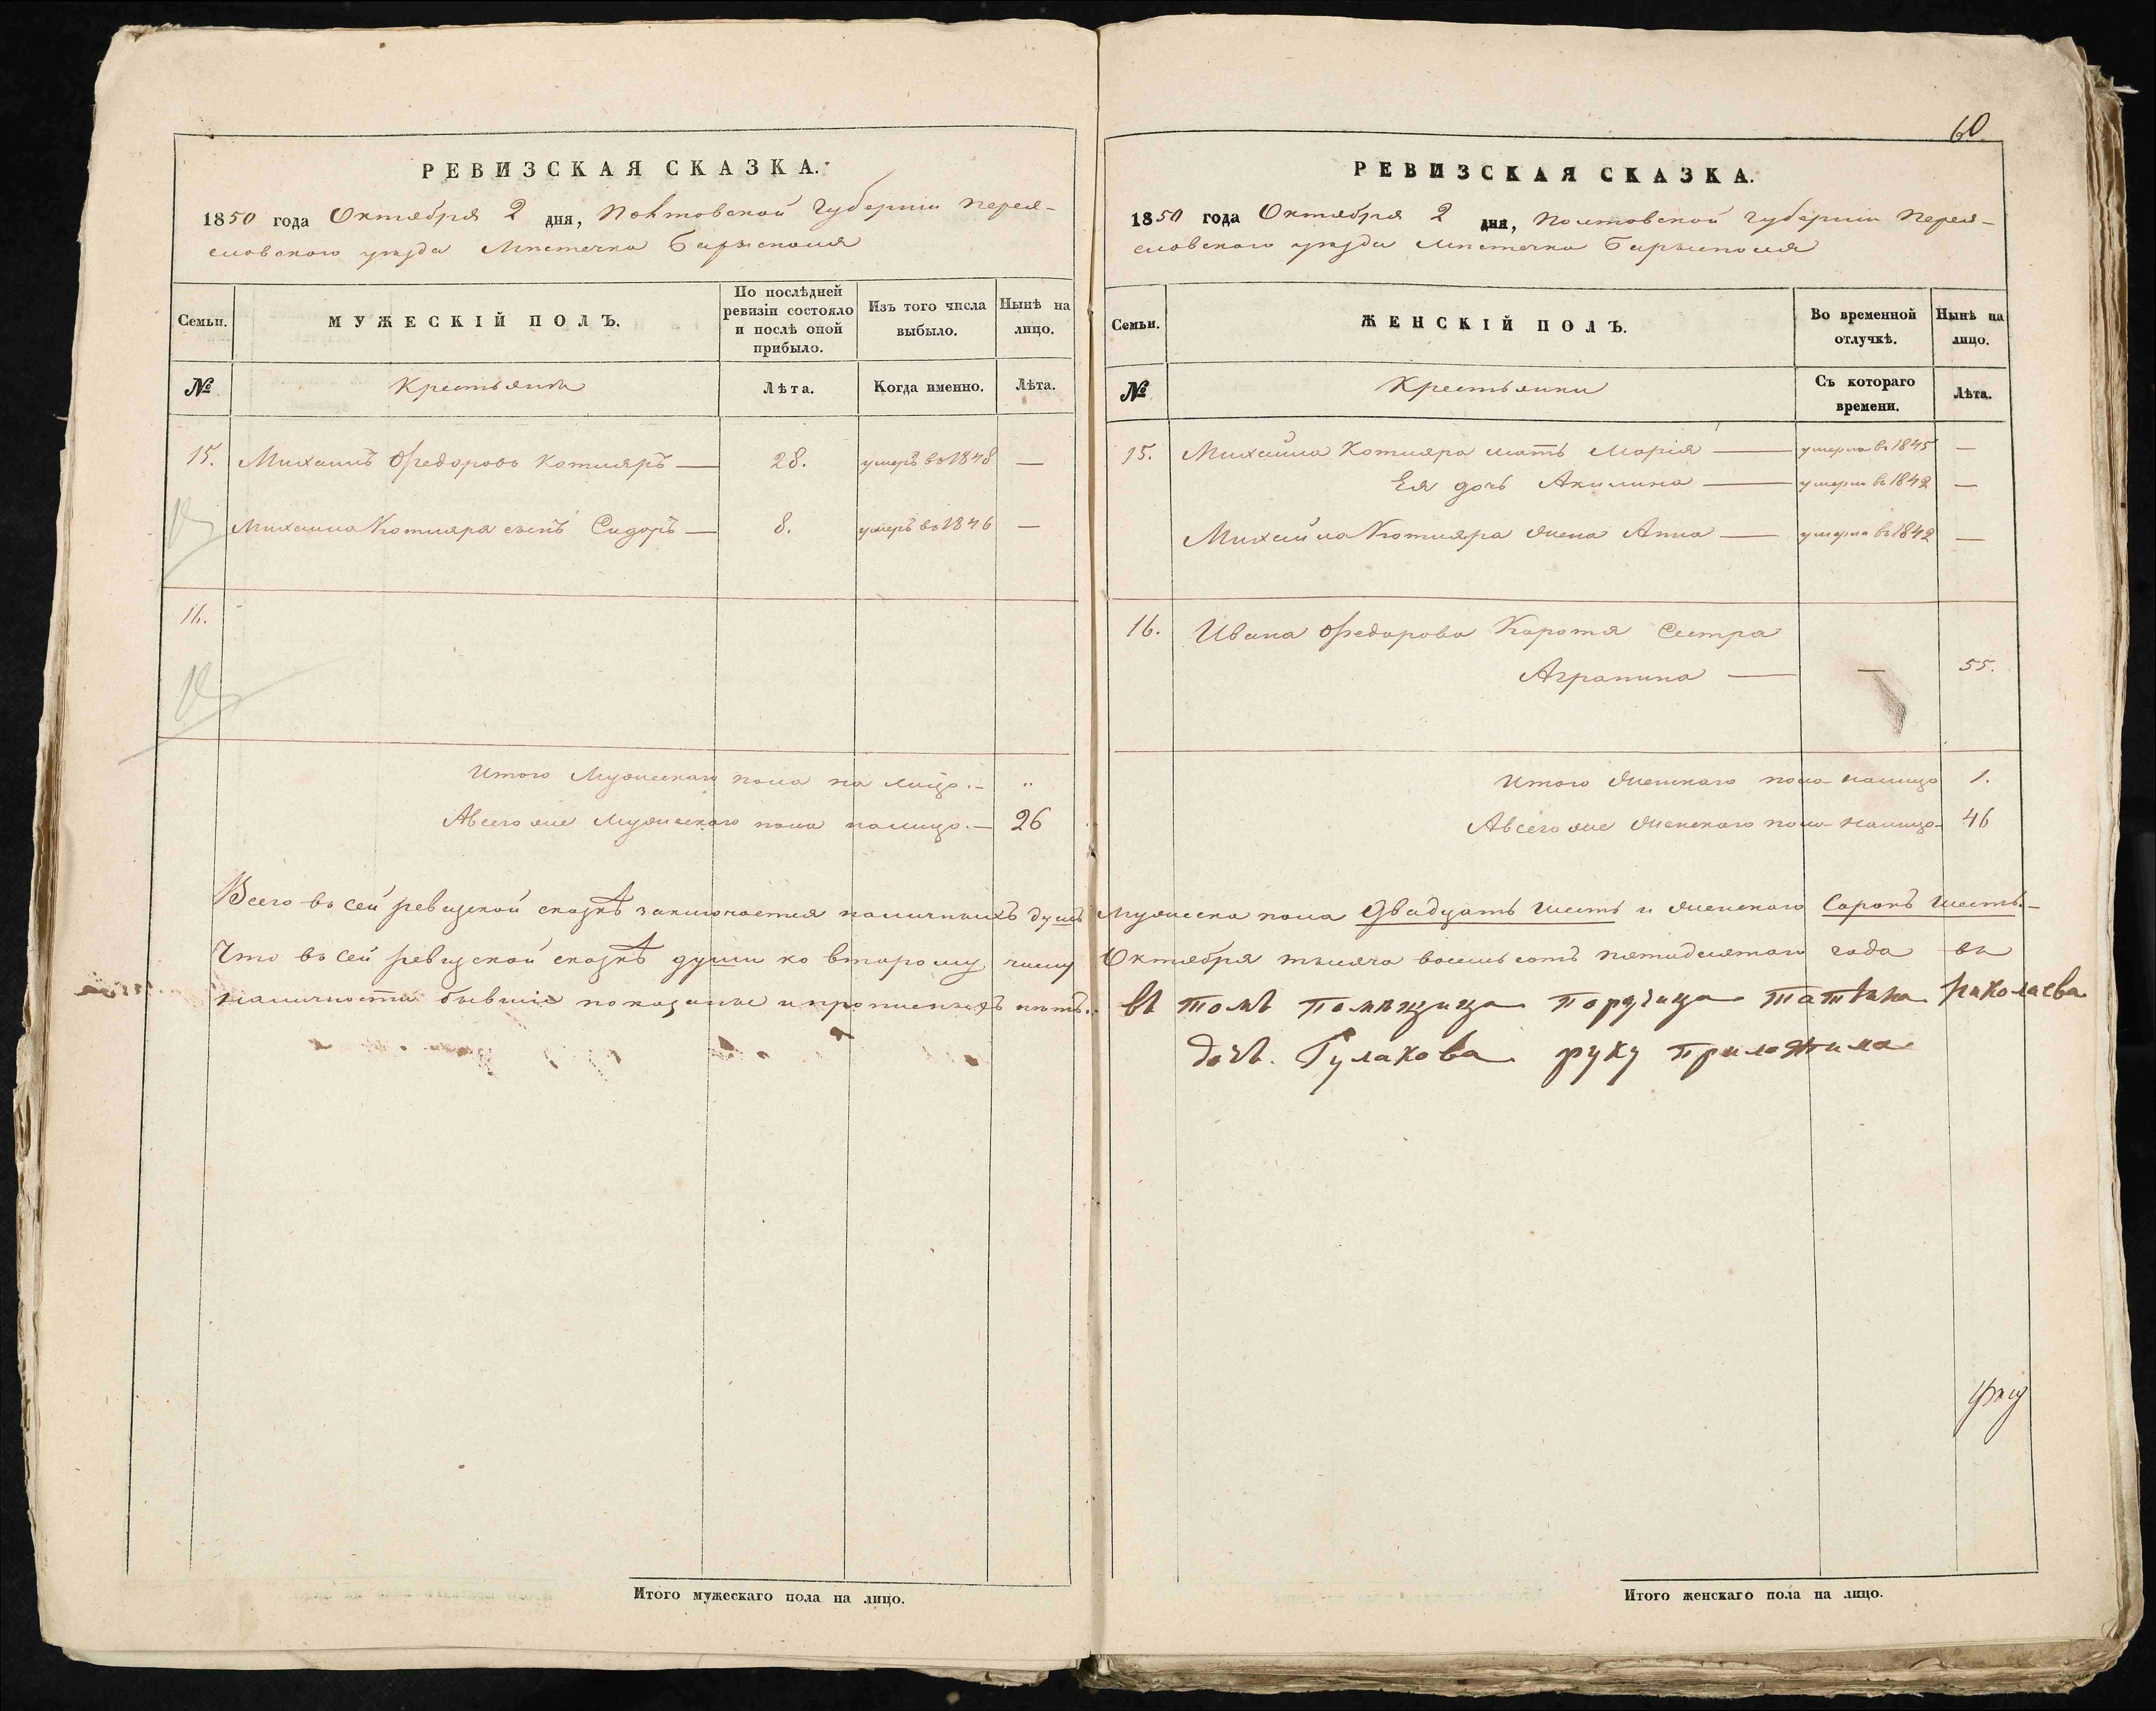 РЕВИЗСКАЯ СКАЗКА.
1850 года Октября 2 дня, Полтовской Губерніи Перея-
словского уѣзда Мѣстечка Барысполя
Семьи.
МУЖЕСКІЙ ПОЛЪ.
По послѣдней ревизіи состояло и послѣ оной прибыло.
Изъ того числа выбыло.
Нынѣ на лицо.
№
Крестьяни
Лѣта.
Когда именно.
Лѣта.
15. Михаилъ Федоровъ Котляръ — 28. умеръ въ 1848 —
Михаила Котляра сынъ Сидоръ — 8. умеръ въ 1846 —
16.
Итого Мужескаго пола на лицо. — "
А всего же Мужескаго пола налицо. — 26
Всего въ сей ревизской сказкѣ заключается наличныхъ душъ
Что въ сей ревизской сказкѣ души ко второму числу
наличности бывшіе показаны и прописныхъ нѣтъ.
Итого мужескаго пола на лицо.
60
РЕВИЗСКАЯ СКАЗКА.
1850 года Октября 2 дня, Полтовской губерніи Перея-
словского уѣзда Мѣстечка Барысполя
Семьи.
ЖЕНСКІЙ ПОЛЪ.
Во временной отлучкѣ.
Нынѣ на лицо.
№
Крестьянки
Съ котораго времени.
Лѣта.
15. Михайла Котляра мать Марія — умерла въ 1845 —
Ея дочь Акилина — умерла въ 1842 —
Михайла Котляра жена Анна — умерла въ 1842 —
16. Ивана Федорова Коротя Сестра
Аграпина — — 55.
Итого женскаго пола налицо 1.
А всего же женского пола налицо — 46
Мужеска пола Двадцать шесть и женскаго Сорокъ шесть. —
Октября тысяча восемь сотъ пятидесятаго года въ
въ томъ помѣщица поручица татяна николаева
дочь. Гулакова руку приложила
Итого женскаго пола на лицо.